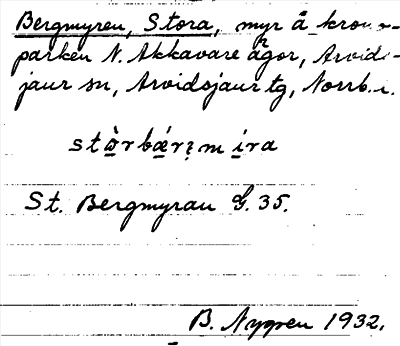 Bergmyren, Stora, myr å krono-
parken N. Akkavare ägor, Arvids-
jaur sn, Arvidsjaur tg, Norrb. l.
stòrbǽrm mira
St. Bergmyrau G. 35.
B. Nygren 1932.